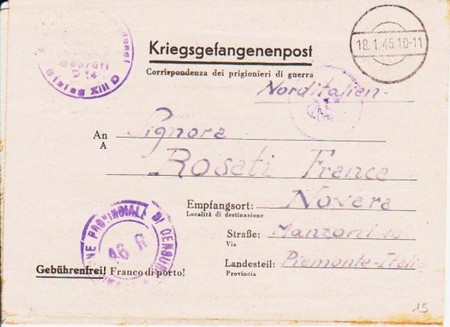 Geprüft
Stalag XIII
Kriegsgefangenenpost
18.1.45.10-11
Corrispondenza dei prigionieri di guerra
Norditalien.
An
A
Signora
Rosati France
Empfangsort: Novara
Località di destinazione
PROVINCIALE DI CENSURA
46 R
Straße: Manzoni
Via
Gebührenfrei! Franco di porto!
Landesteil: Piemonte-Italia
Provincia
15